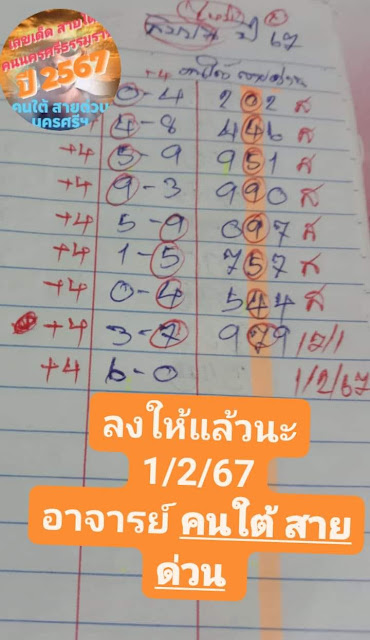 เลขเด็ด สายใต้
คนนครศรีธรรมราช
ปี 2567
คนใต้ สายด่วน
นครศรีฯ
ปี 67
+4
0-4 202 ส
4-8 446 ส
+4 5-9 951 ส
+4 9-3 990 ส
+4 5-9 097 ส
+4 1-5 757 ส
+4 0-4 544 ส
+4 3-7 979 17/1
+4 6-0 1/2/67
ลงให้แล้วนะ
1/2/67
อาจารย์ คนใต้ สาย
ด่วน